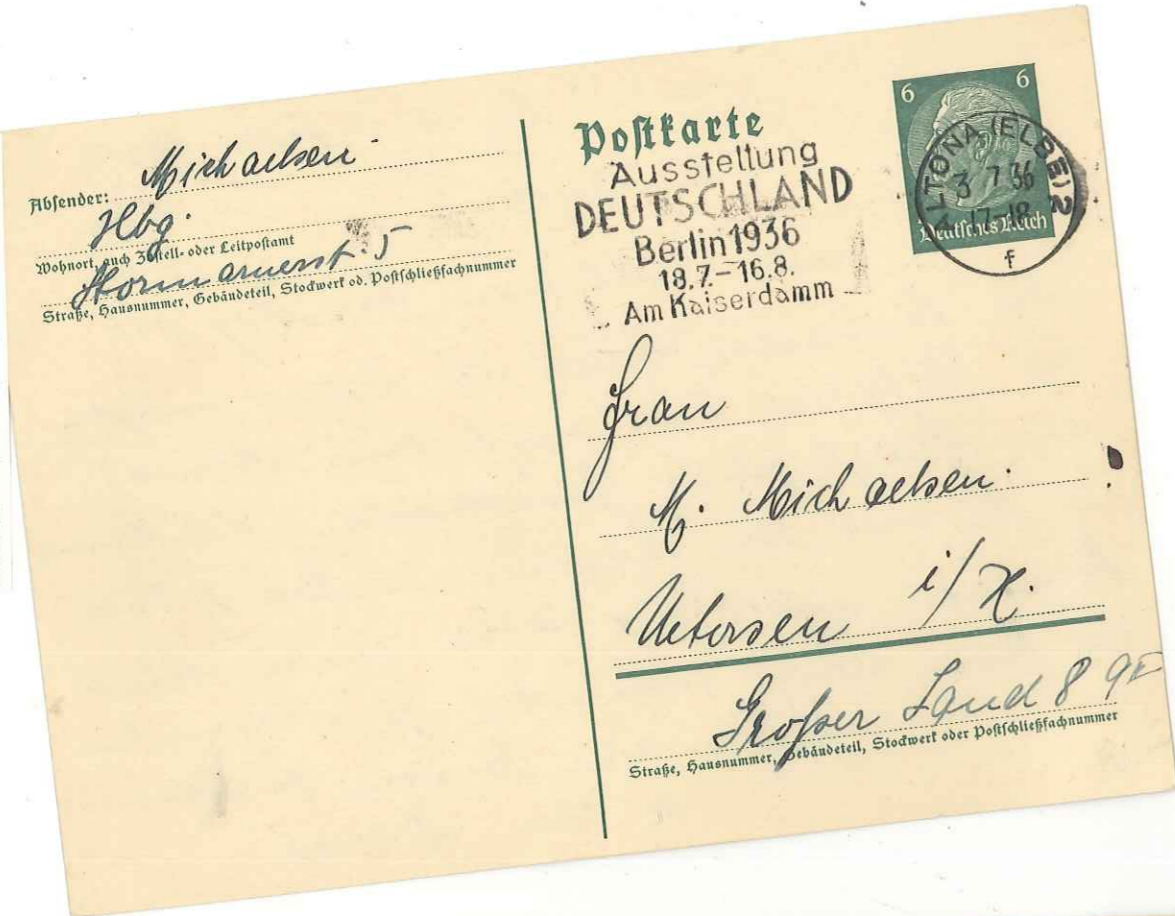 Absender: Michaelsen.
Hbg.
Wohnort, auch Zustell- oder Leitpostamt
Stormarnerst. 5
Straße, Hausnummer, Gebäudeteil, Stockwerk od. Postschließfachnummer
Postkarte
Ausstellung
DEUTSCHLAND
Berlin 1936
18.7.-16.8.
Am Kaiserdamm
6 6
Deutsches Reich
ALTONA (ELBE) 2
3 7 36
17-18
f
Frau
M. Michaelsen.
Uetersen i/H.
Großer Sand 8
Straße, Hausnummer, Gebäudeteil, Stockwerk oder Postschließfachnummer